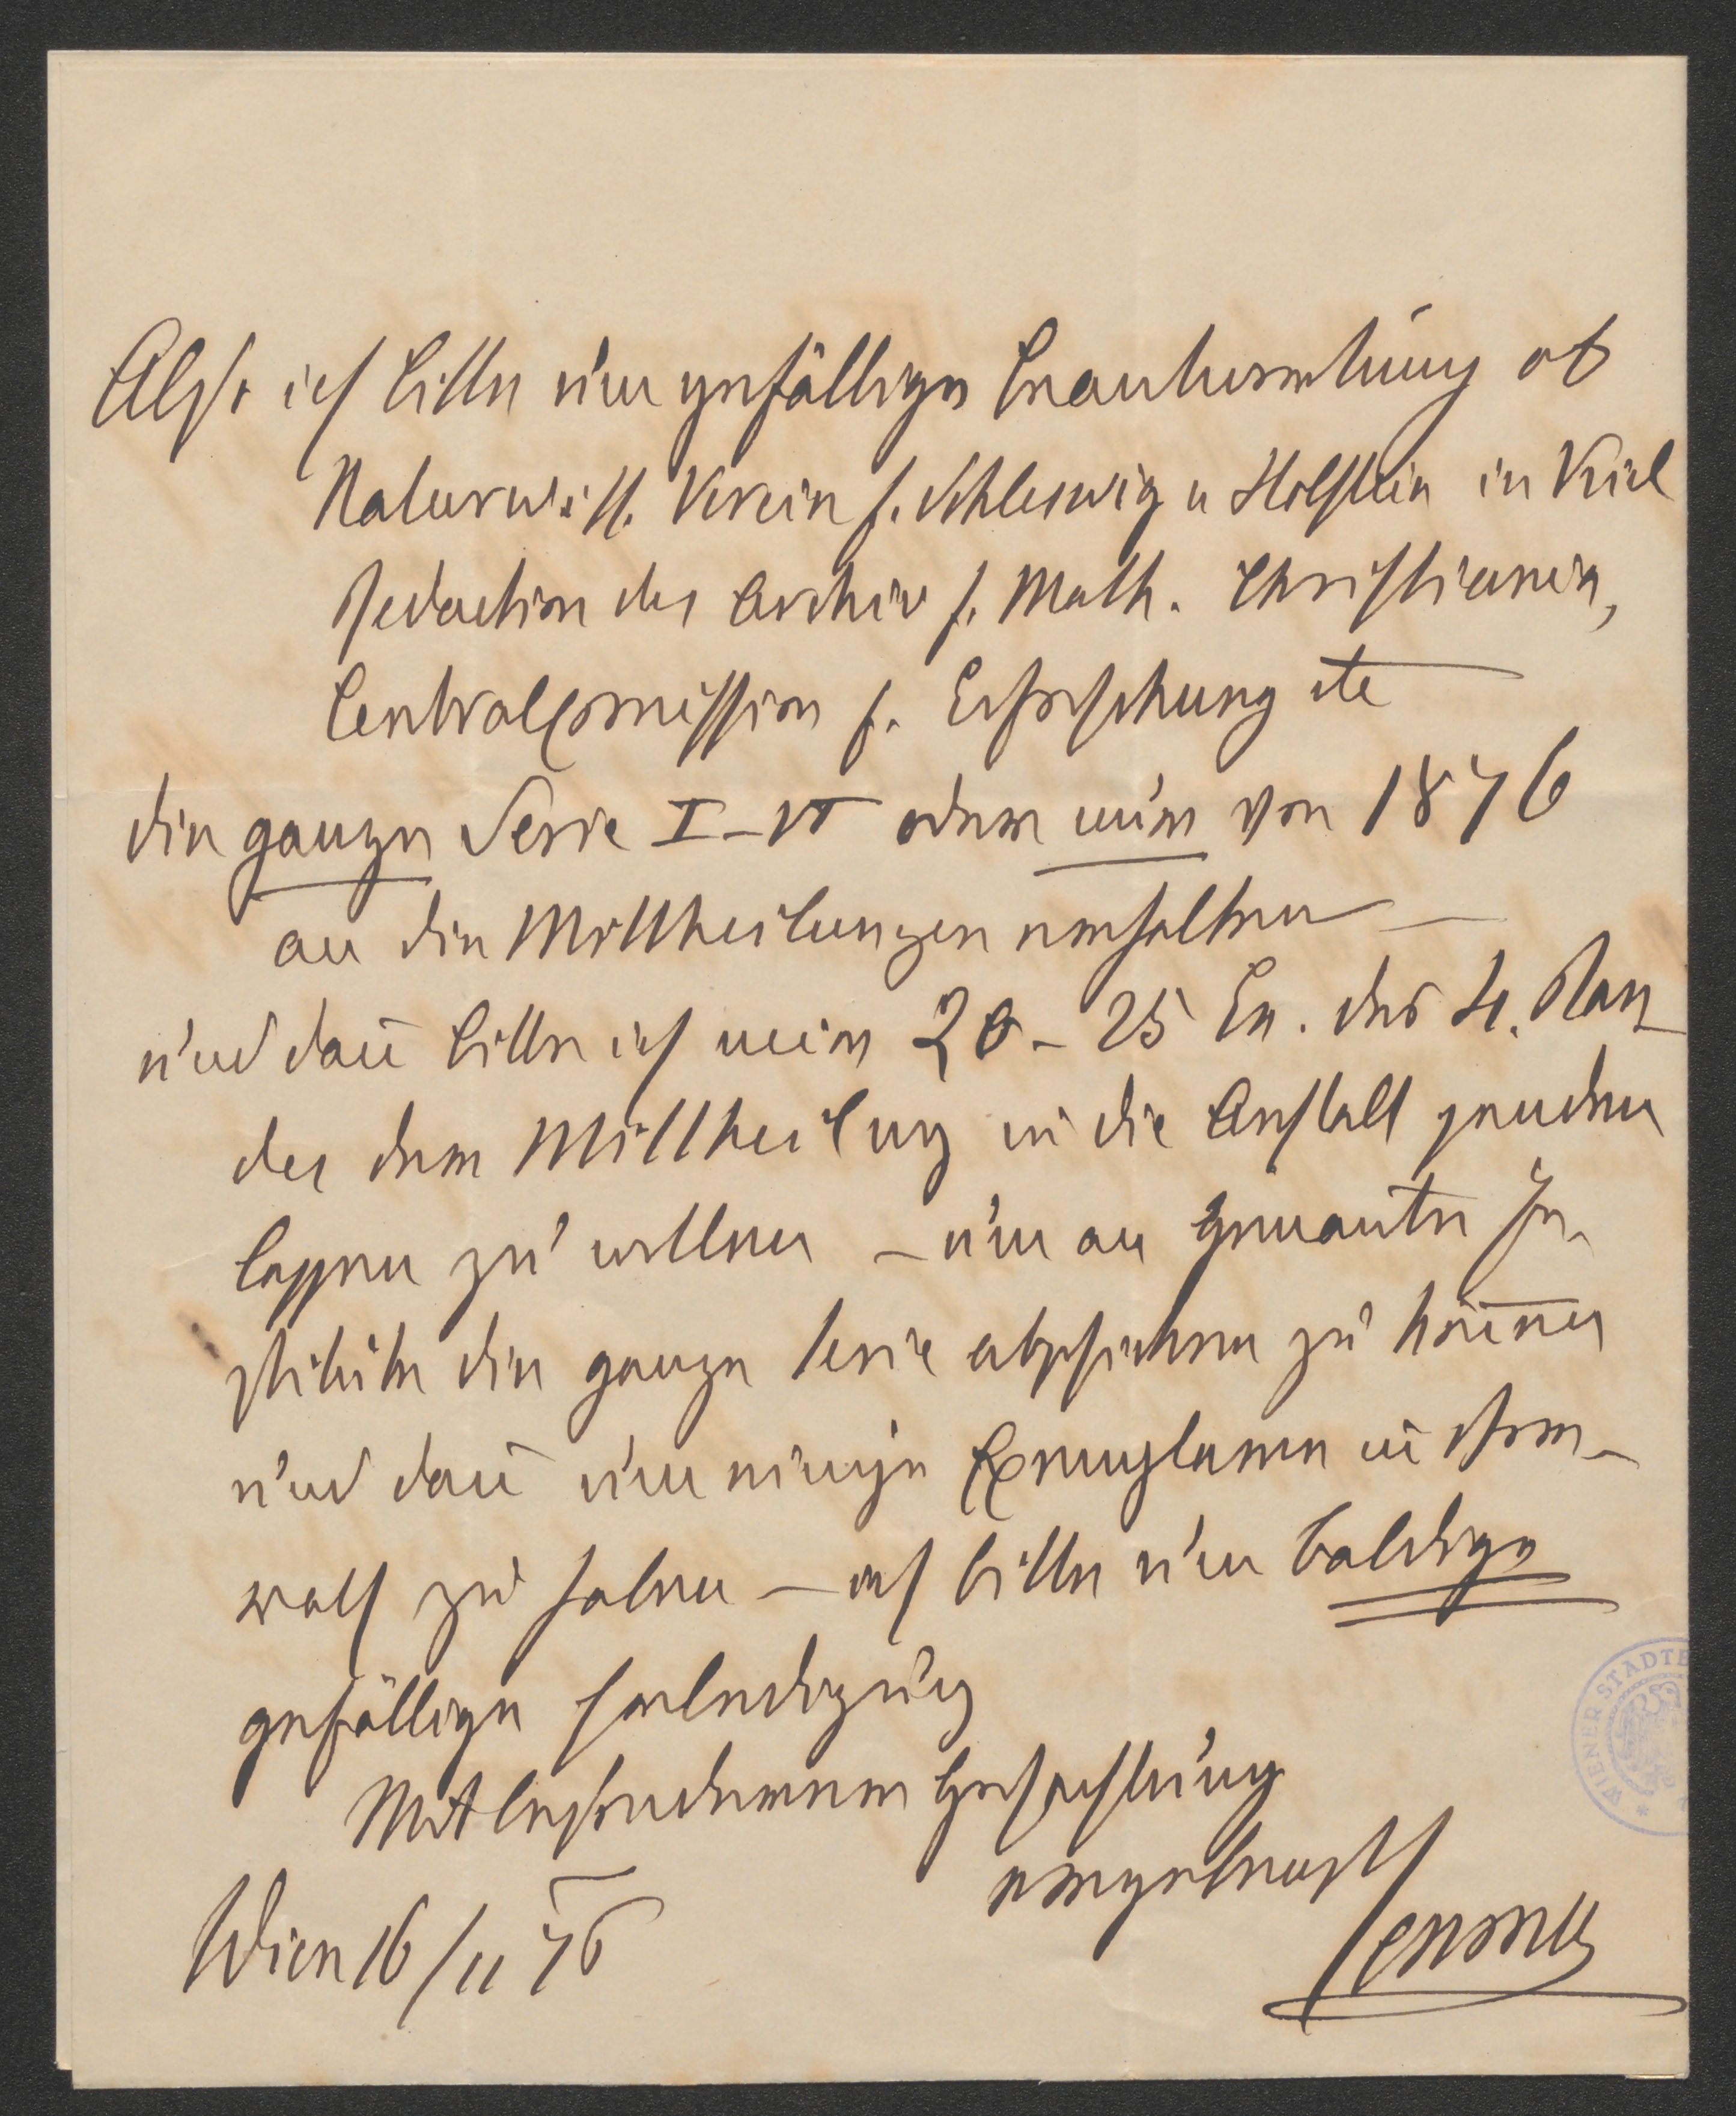 Also ich bitte um gefällige Beantwortung ob
Naturwiss. Verein f. Schleswig u Holstein in Kiel
Redaction des Archiv f. Math. Christiania,
Centralcomission f. Erforschung etc
die ganze Serie I–VI oder nur von 1876
an die Mittheilungen erhalten –
und dañ bitte ich mir 20–25 Ex. des 4. Ban
des der Mittheilung in die Anstalt senden
lassen zu wollen – um an genañte In-
stitute die ganze Serie absenden zu köñen
und dañ um einige Exemplare in Vor-
rath zu haben – ich bitte um baldige
gefällige Erledigung
Mit besonderer Hochachtung
ergebenst
Wien 16/11 76
WIENER STADTB